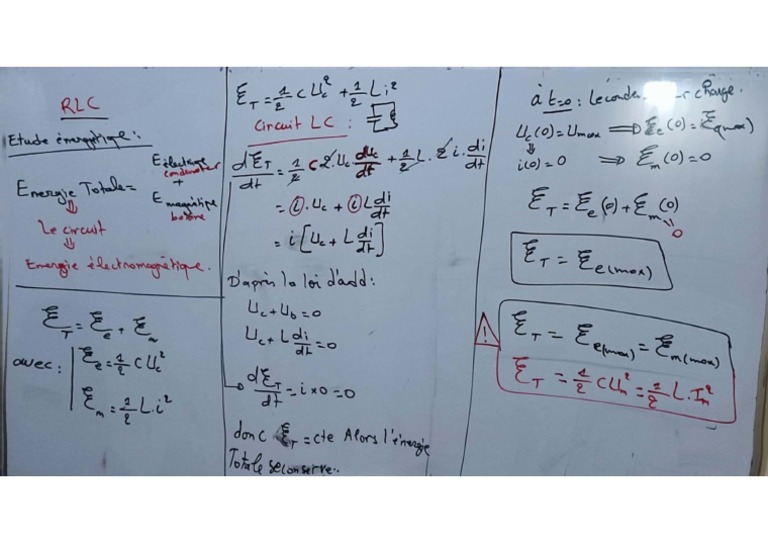 RLC
Etude énergétique :
Energie Totale = E électrique condensateur + E magnétique bobine
⇓
Le circuit
⇓
Energie électromagnétique.
ξ_T = ξ_e + ξ_m
avec : ξ_e = 1/2 C U_c^2
ξ_m = 1/2 L.i^2
ξ_T = 1/2 C U_c^2 + 1/2 L i^2
Circuit LC :
dξ_T/dt = 1/2 C 2.U_c dU_c/dt + 1/2 L. 2 i. di/dt
= i.U_c + i L di/dt
= i [U_c + L di/dt]
D'après la loi d'add :
U_c + U_b = 0
U_c + L di/dt = 0
→ dξ_T/dt = i × 0 = 0
donc ξ_T = cte Alors l'énergie
Totale se conserve..
à t=0 : Le conden charge.
U_c(0) = U_max ⇒ ξ_e(0) = ξ_e(max)
⇓
i(0) = 0 ⇒ ξ_m(0) = 0
ξ_T = ξ_e(0) + ξ_m(0)
0
ξ_T = ξ_e(max)
! ξ_T = ξ_e(max) = ξ_m(max)
ξ_T = 1/2 C U_m^2 = 1/2 L. I_m^2